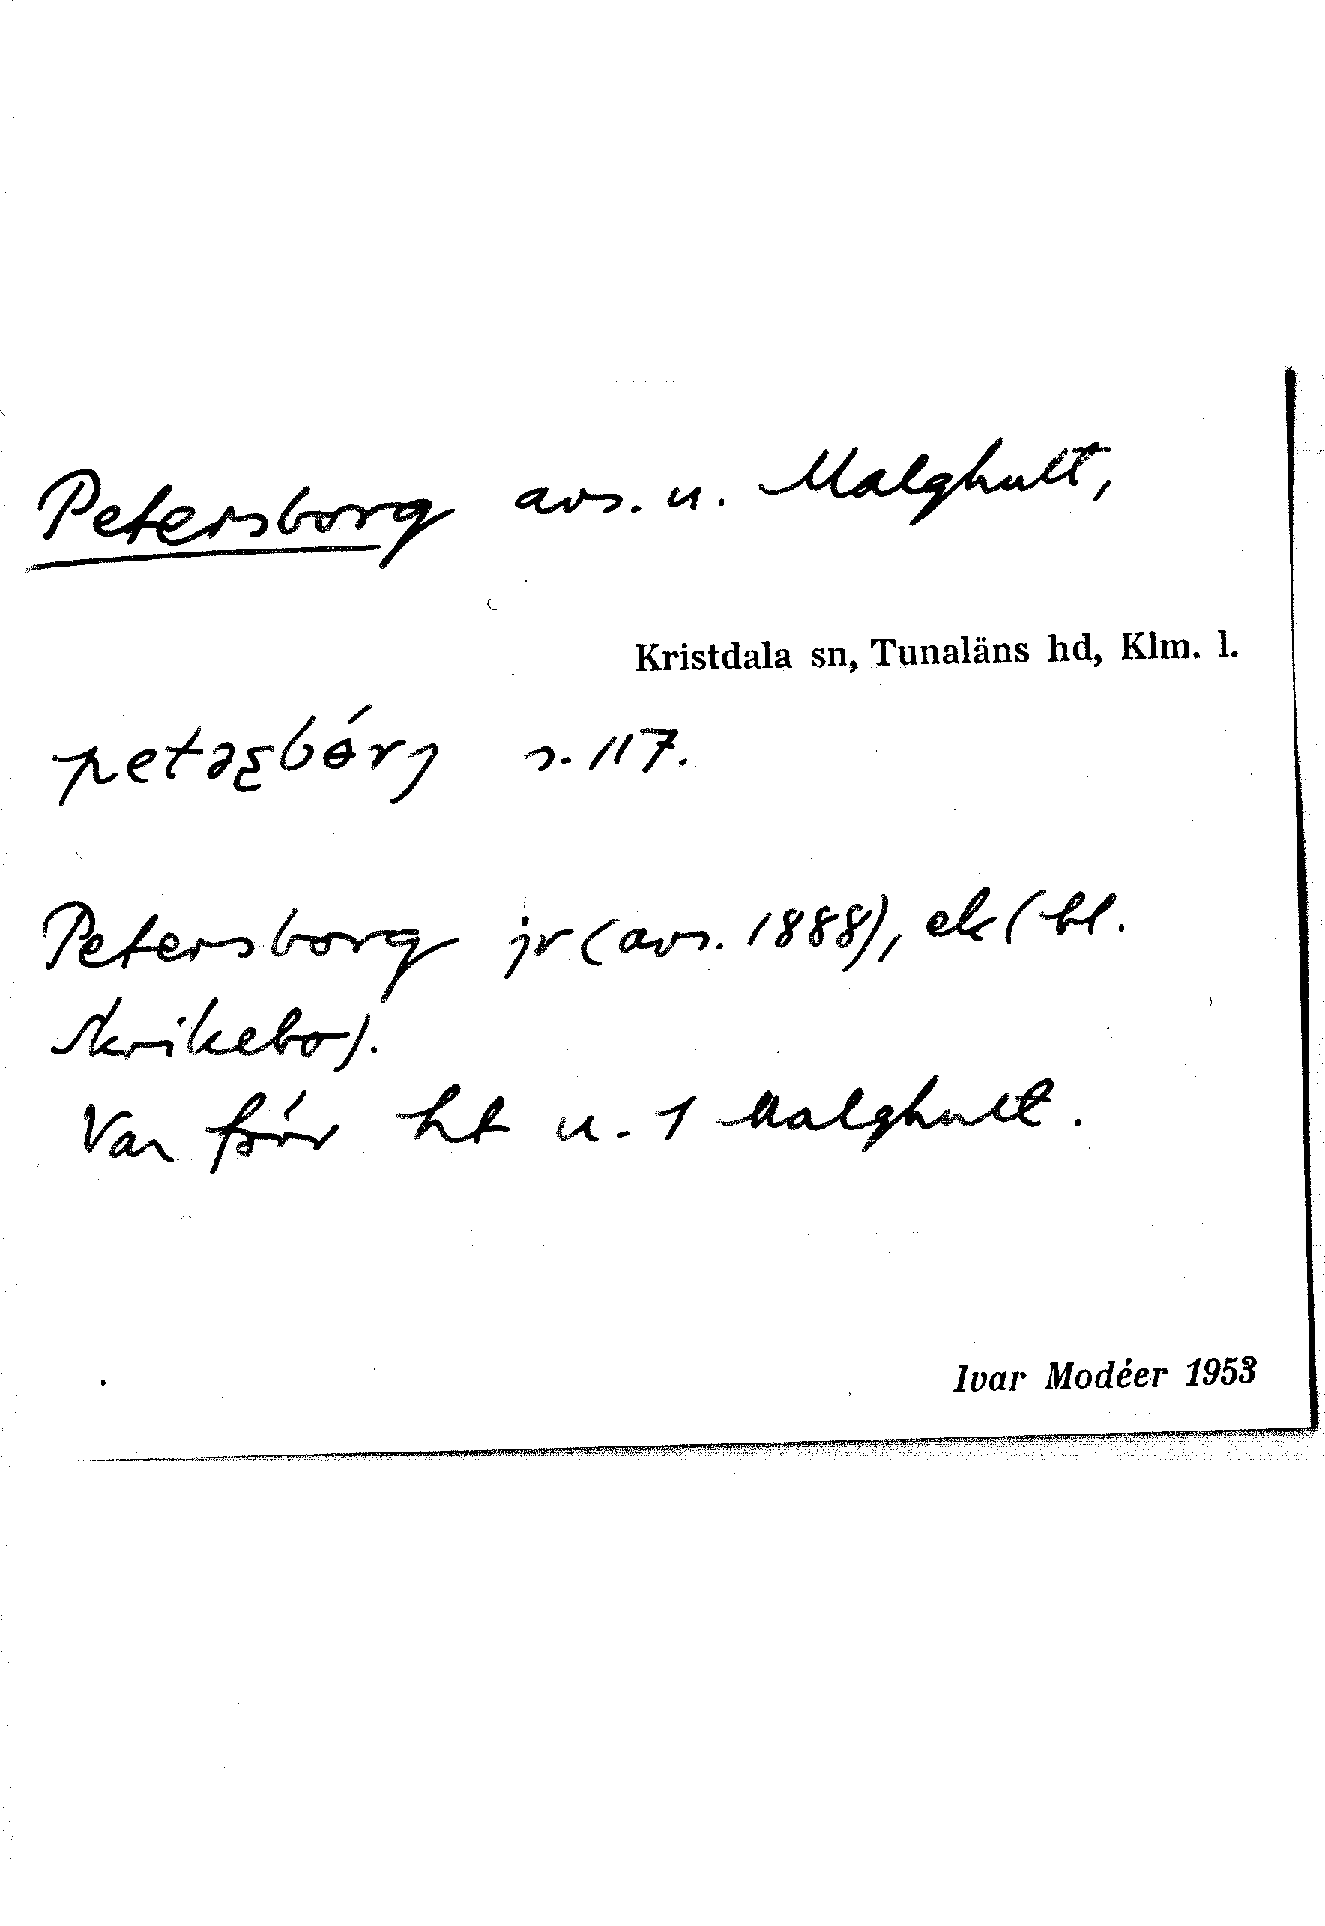 Petersborg avs. u. Malghult,
Kristdala sn, Tunaläns hd, Klm. l.
s. 117.
Petersborg jr (avs. 1888), ek (bl.
Skrikebo).
Var förr ht u. 1 Malghult.
Ivar Modéer 1953